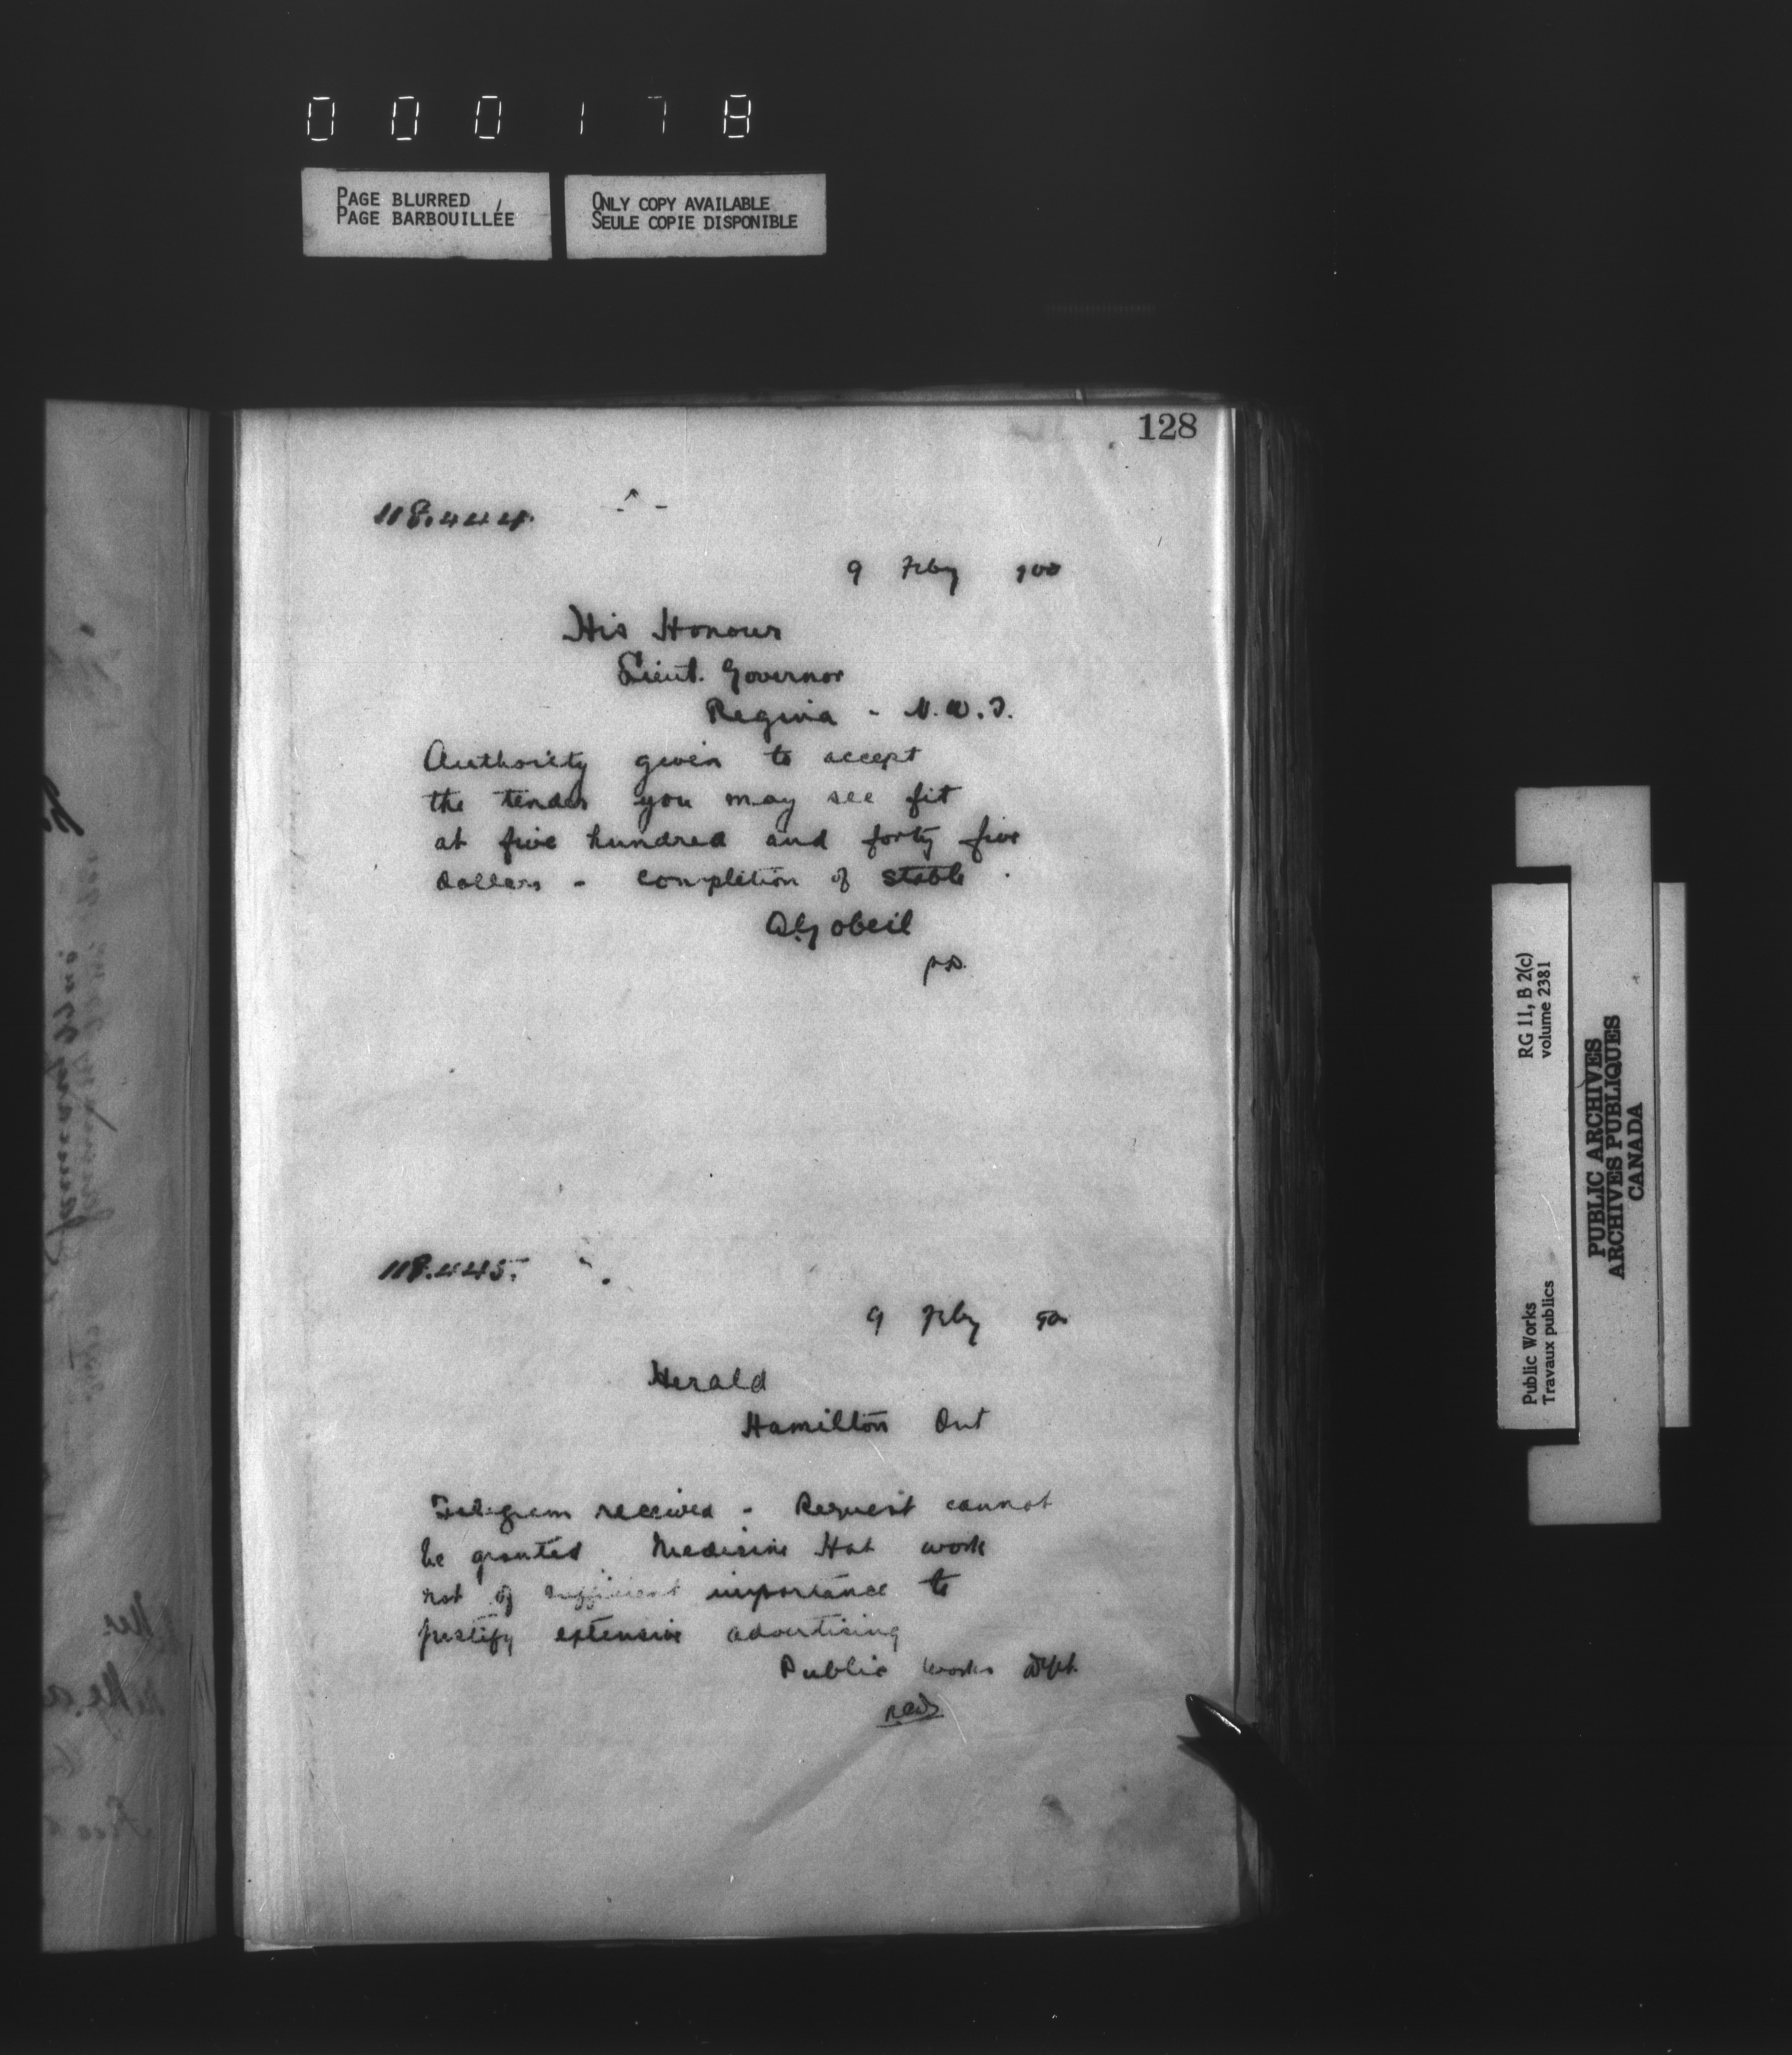 000178
PAGE BLURRED
PAGE BARBOUILLÉE
ONLY COPY AVAILABLE
SEULE COPIE DISPONIBLE
128
118.444.
9 Feby 900
His Honour
Lieut. Governor
Regina - N.W.T.
Authority given to accept
the tender you may see fit
at five hundred and forty five
dollars - completion of stable.
A Gobeil
118.445.
9 Feby 900
Herald
Hamilton Ont
Telegram received - Request cannot
be granted Medicine Hat work
not of sufficient importance to
justify extensive advertising
Public Works Dept.
RG 11, B 2(c)
volume 2381
Public Works
Travaux publics
PUBLIC ARCHIVES
ARCHIVES PUBLIQUES
CANADA